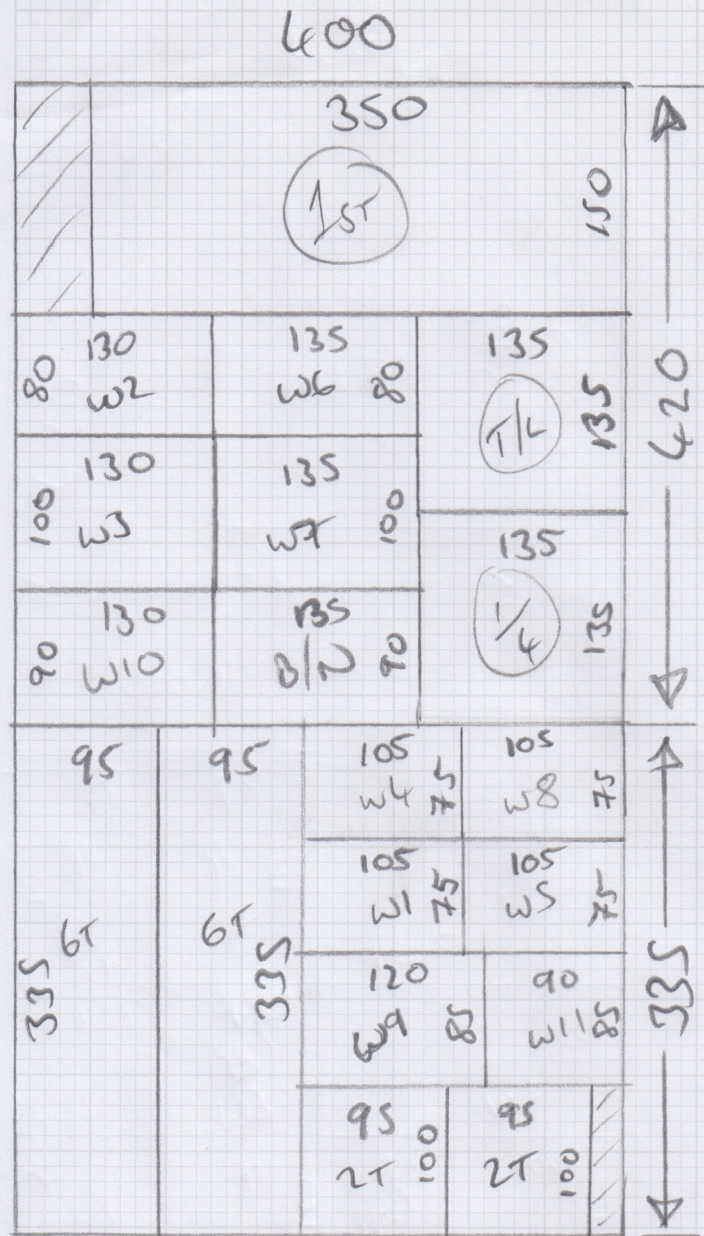 400
350
1ST
150
130
80
W2
135
W6
80
135
T/L
135
420
130
100
W3
135
W7
100
135
1/4
135
130
90
W10
135
B/N
90
95
6T
335
95
6T
335
105
W4
75
105
W8
75
105
W1
75
105
W5
75
335
120
W9
85
90
W11
85
95
2T
100
95
2T
100